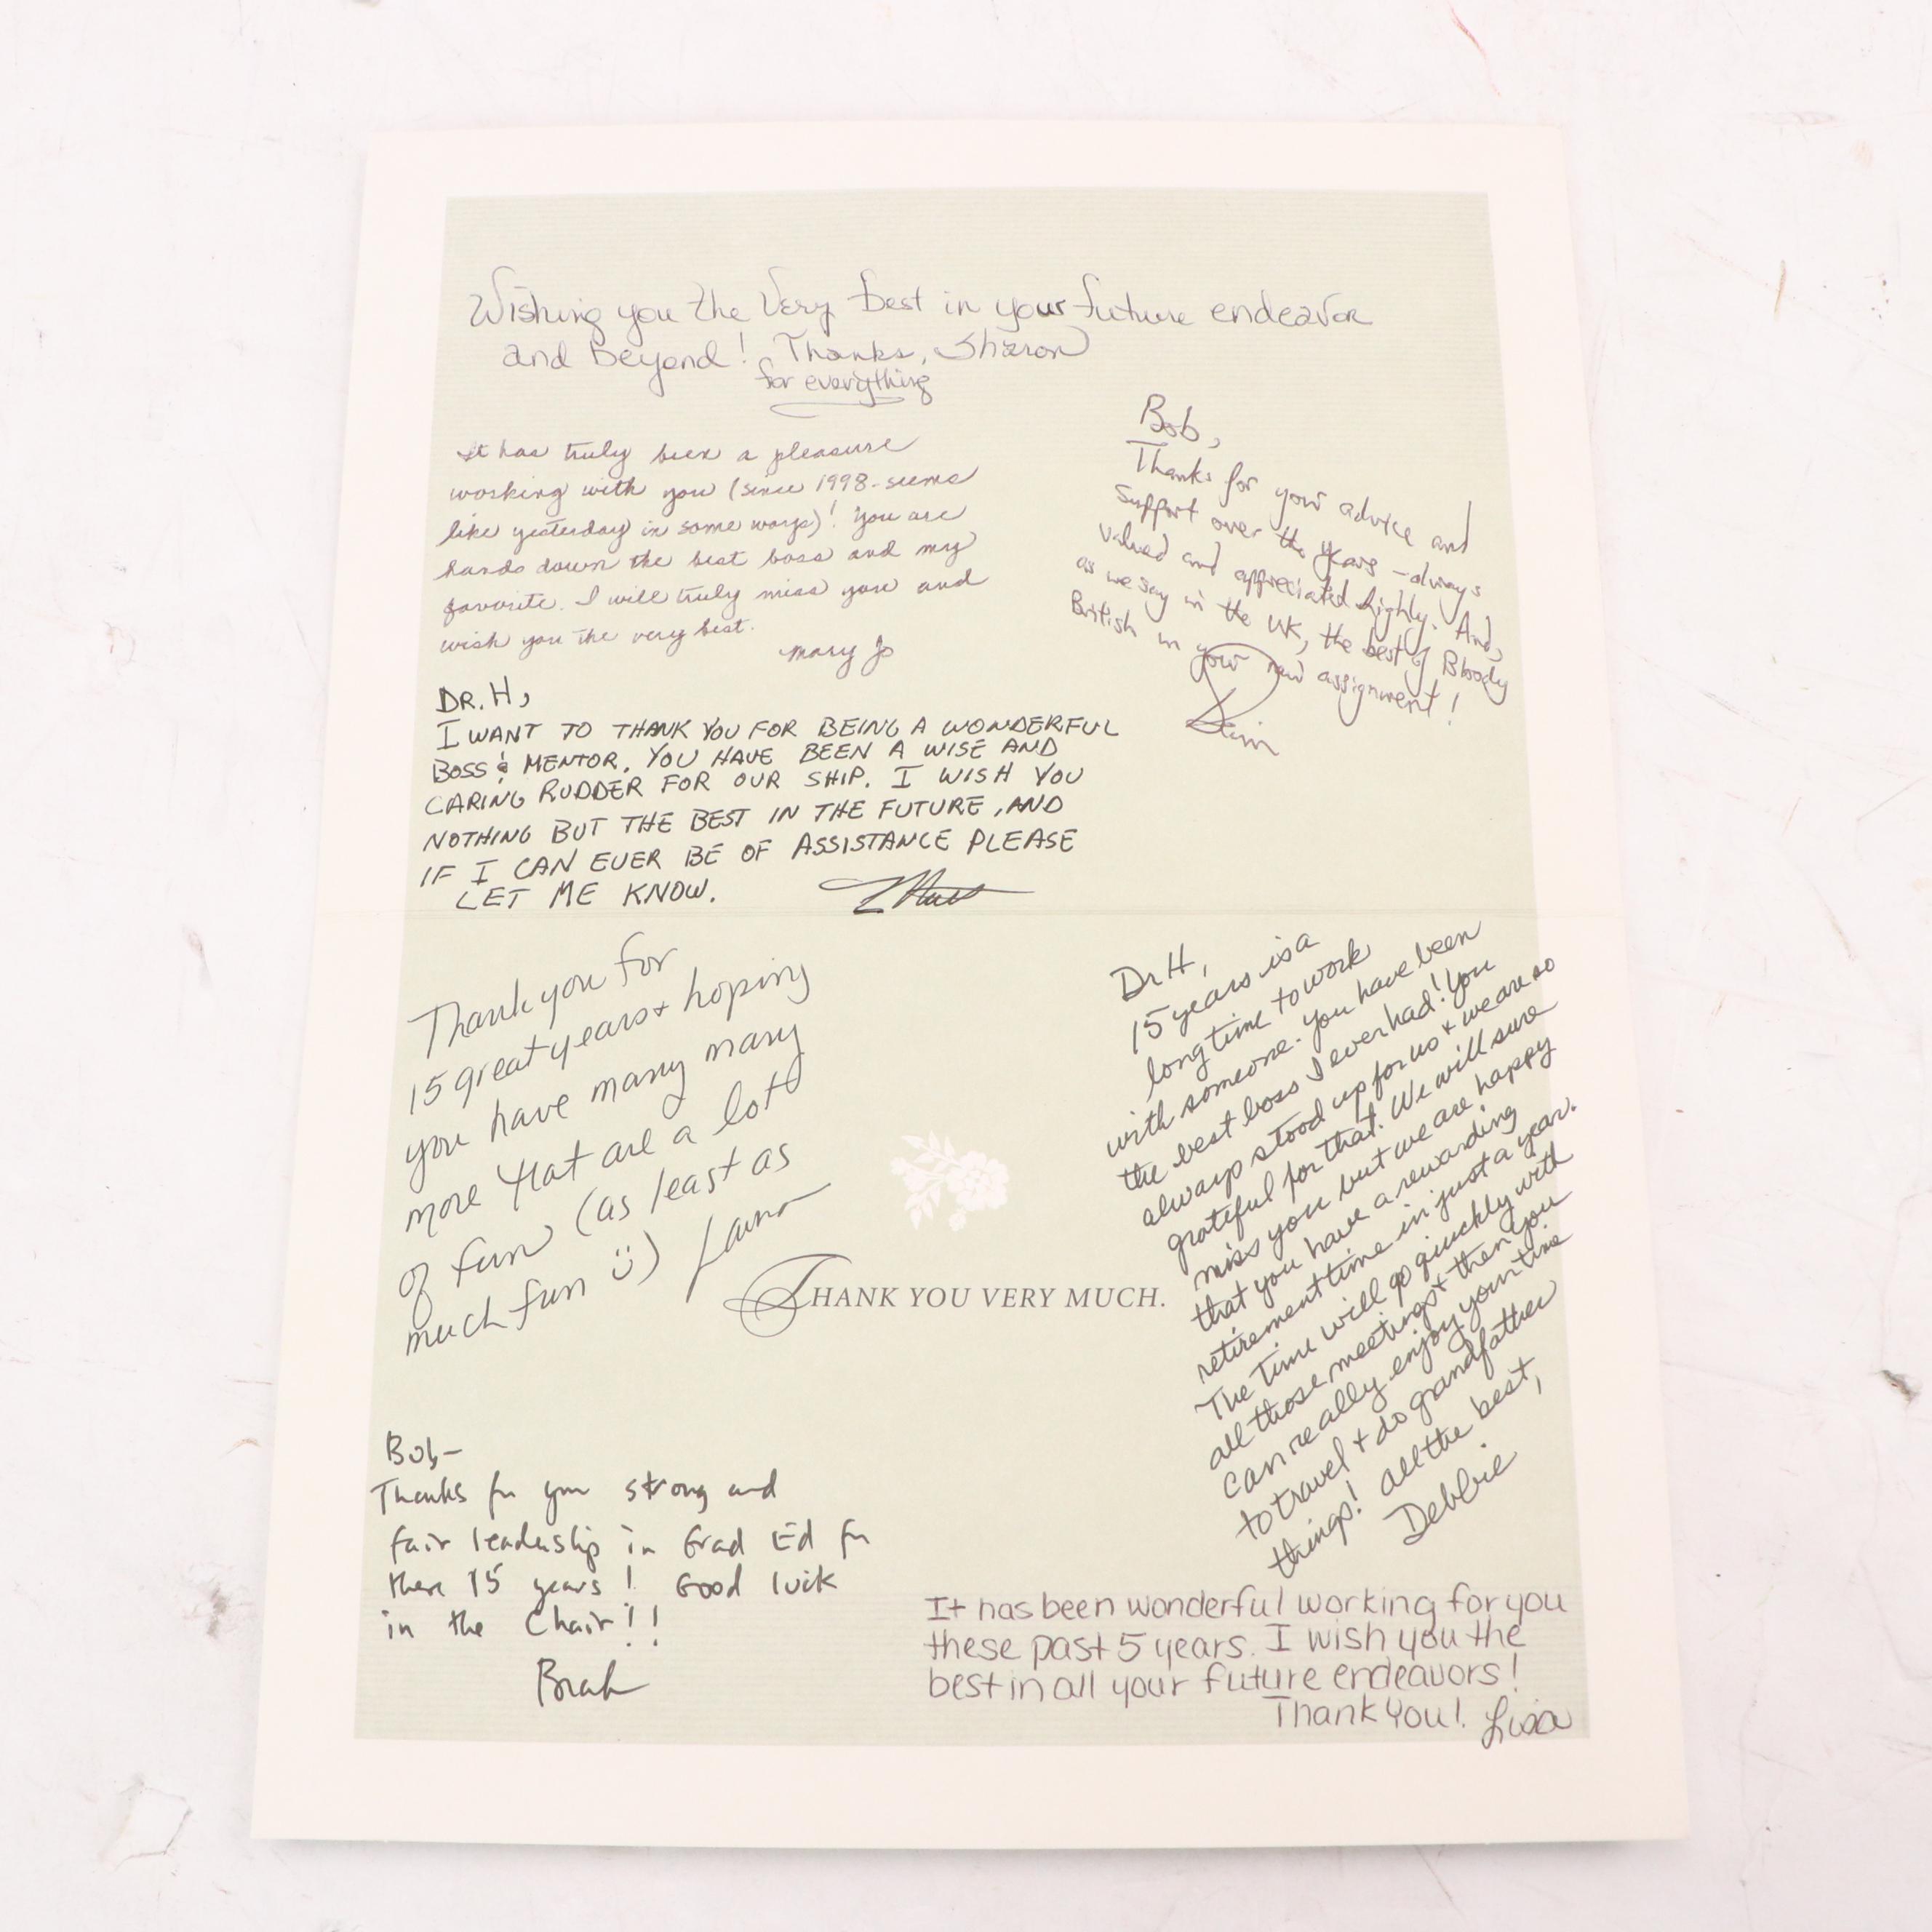 Wishing you the Very Best in your future endeavor
and Beyond! Thanks, Sharon
for everything
It has truly been a pleasure
working with you (since 1998-seems
like yesterday in some ways)! You are
hands down the best boss and my
favorite. I will truly miss you and
wish you the very best.
Mary Jo
Bob,
Thanks for your advice and
support over the years - always
valued and appreciated highly. And,
as we say in the UK, the best of Bloody
British in your new assignment!
DR. H,
I WANT TO THANK YOU FOR BEING A WONDERFUL
BOSS & MENTOR. YOU HAVE BEEN A WISE AND
CARING RUDDER FOR OUR SHIP. I WISH YOU
NOTHING BUT THE BEST IN THE FUTURE, AND
IF I CAN EVER BE OF ASSISTANCE PLEASE
LET ME KNOW.
Thank you for
15 great years + hoping
you have many many
more that are a lot
of fun (as least as
much fun :))
Dr H,
15 years is a
long time to work
with someone. You have been
the best boss I ever had! You
always stood up for us + we are so
grateful for that. We will sure
miss you but we are happy
that you have a rewarding
retirement time in just a year.
The time will go quickly with
all those meetings + then you
can really enjoy your time
to travel + do grandfather
things! All the best,
Debbie
THANK YOU VERY MUCH.
Bob-
Thanks for your strong and
fair leadership in Grad Ed for
these 15 years! Good luck
in the Chair!!
It has been wonderful working for you
these past 5 years. I wish you the
best in all your future endeavors!
Thank You! Lisa